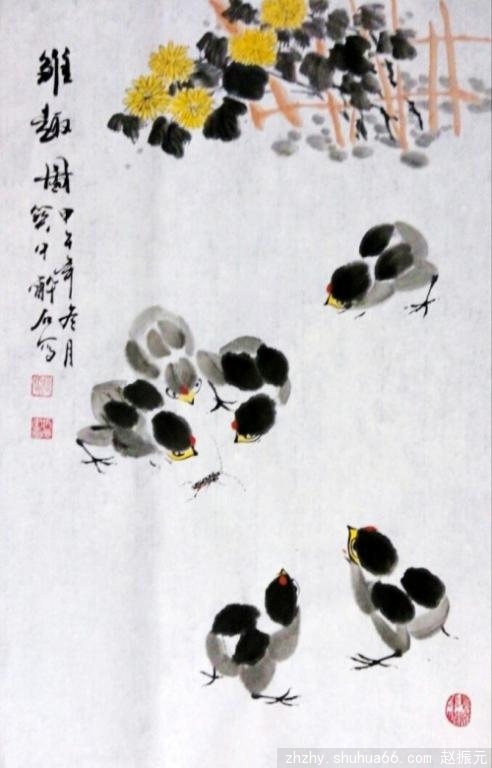 雏趣图
甲午年冬月
醉石写
zhzhy.shuhua66.com 赵振元